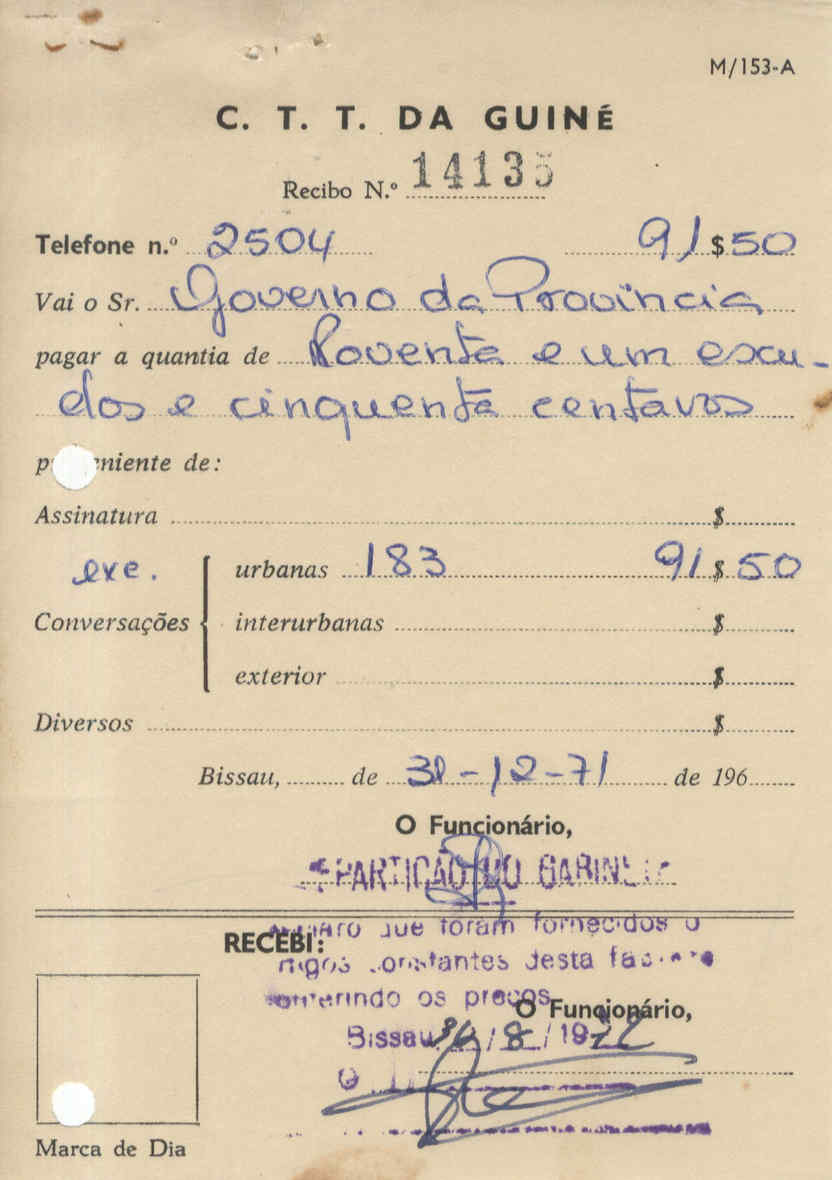 M/153-A
C. T. T. DA GUINÉ
Recibo N.º 14135
Telefone n.º 2504 91$50
Vai o Sr. Governo da Provincia
pagar a quantia de Noventa e um escu-
dos e cinquenta centavos
niente de:
Assinatura $
exe. urbanas 183 91$50
Conversações interurbanas $
exterior $
Diversos $
Bissau, de 31-12-71 de 196
O Funcionário,
que foram fornecidos
RECEBI:
constantes desta
os preços
O Funcionário,
Bissau / 8 / 19
Marca de Dia